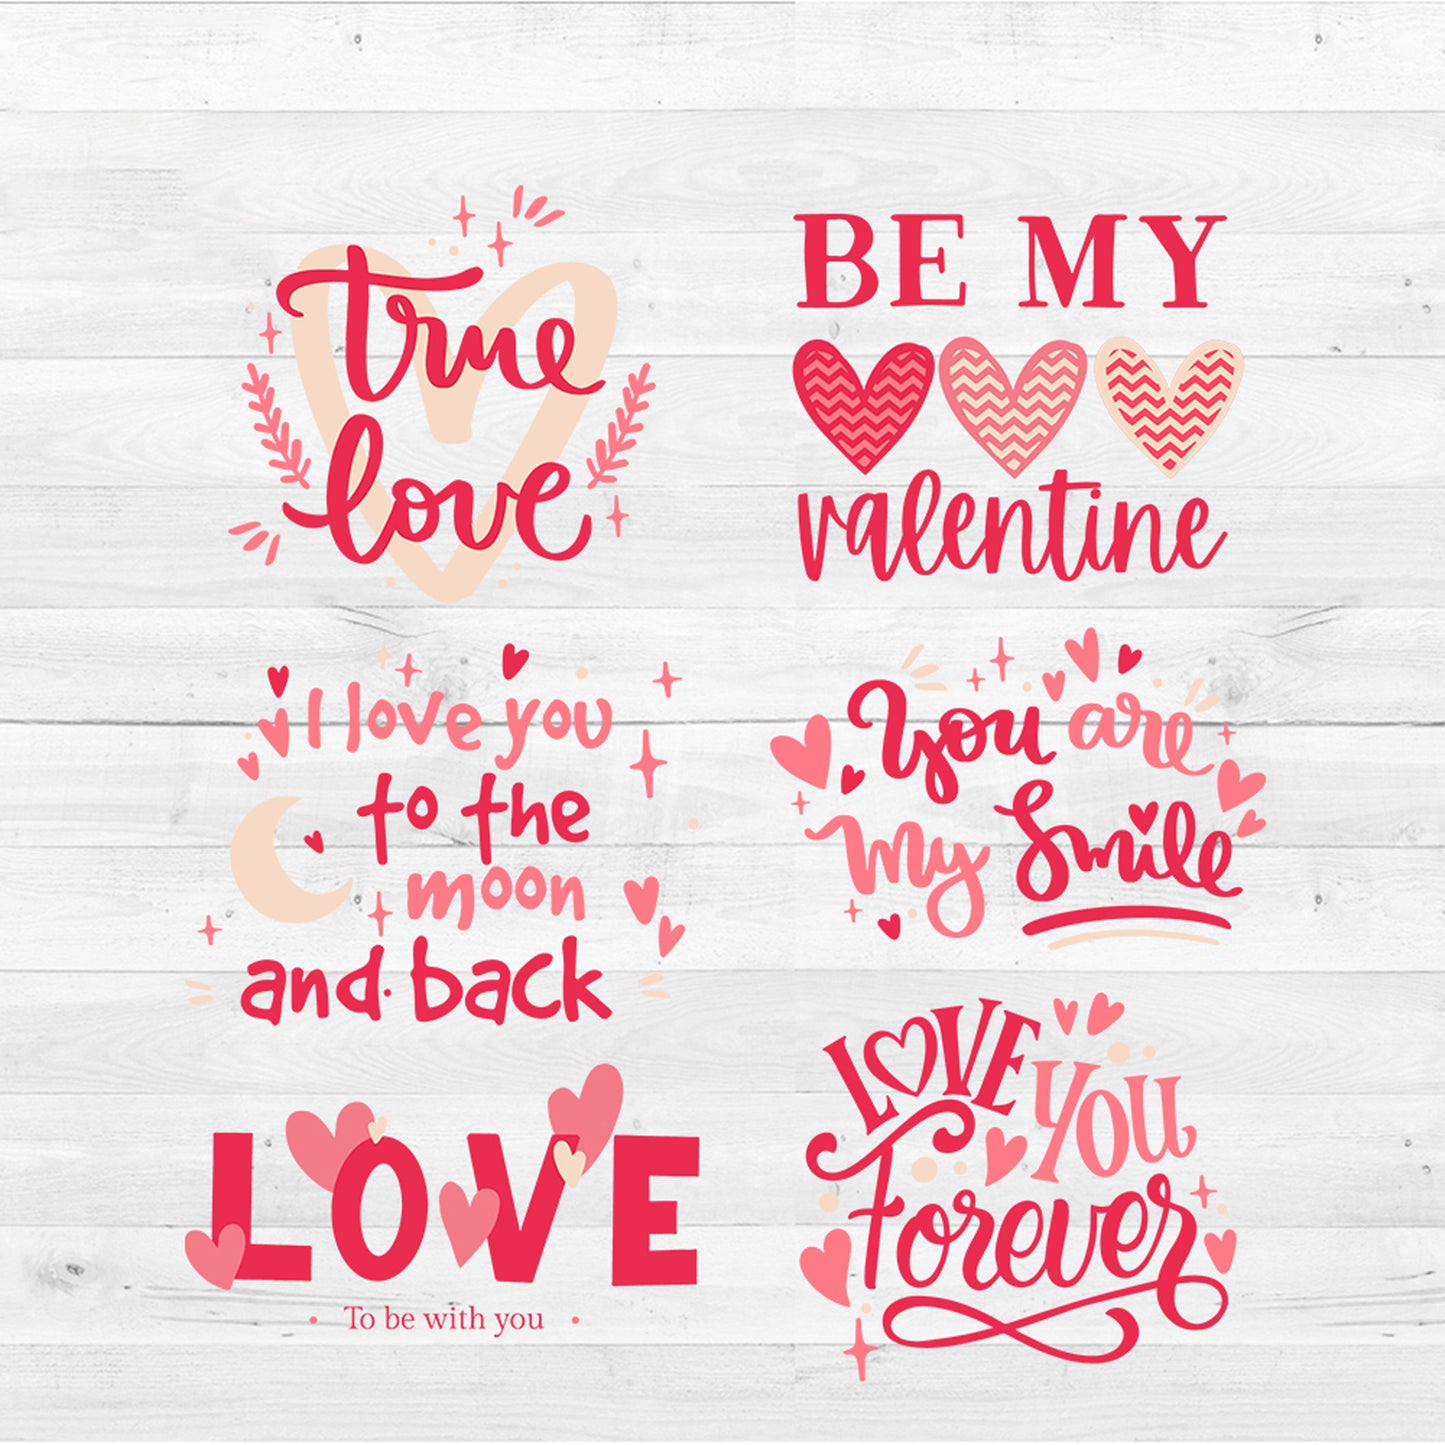 true
love
BE MY
valentine
I love you
to the
moon
and back
You are
my Smile
LOVE
To be with you
LOVE YOU
Forever